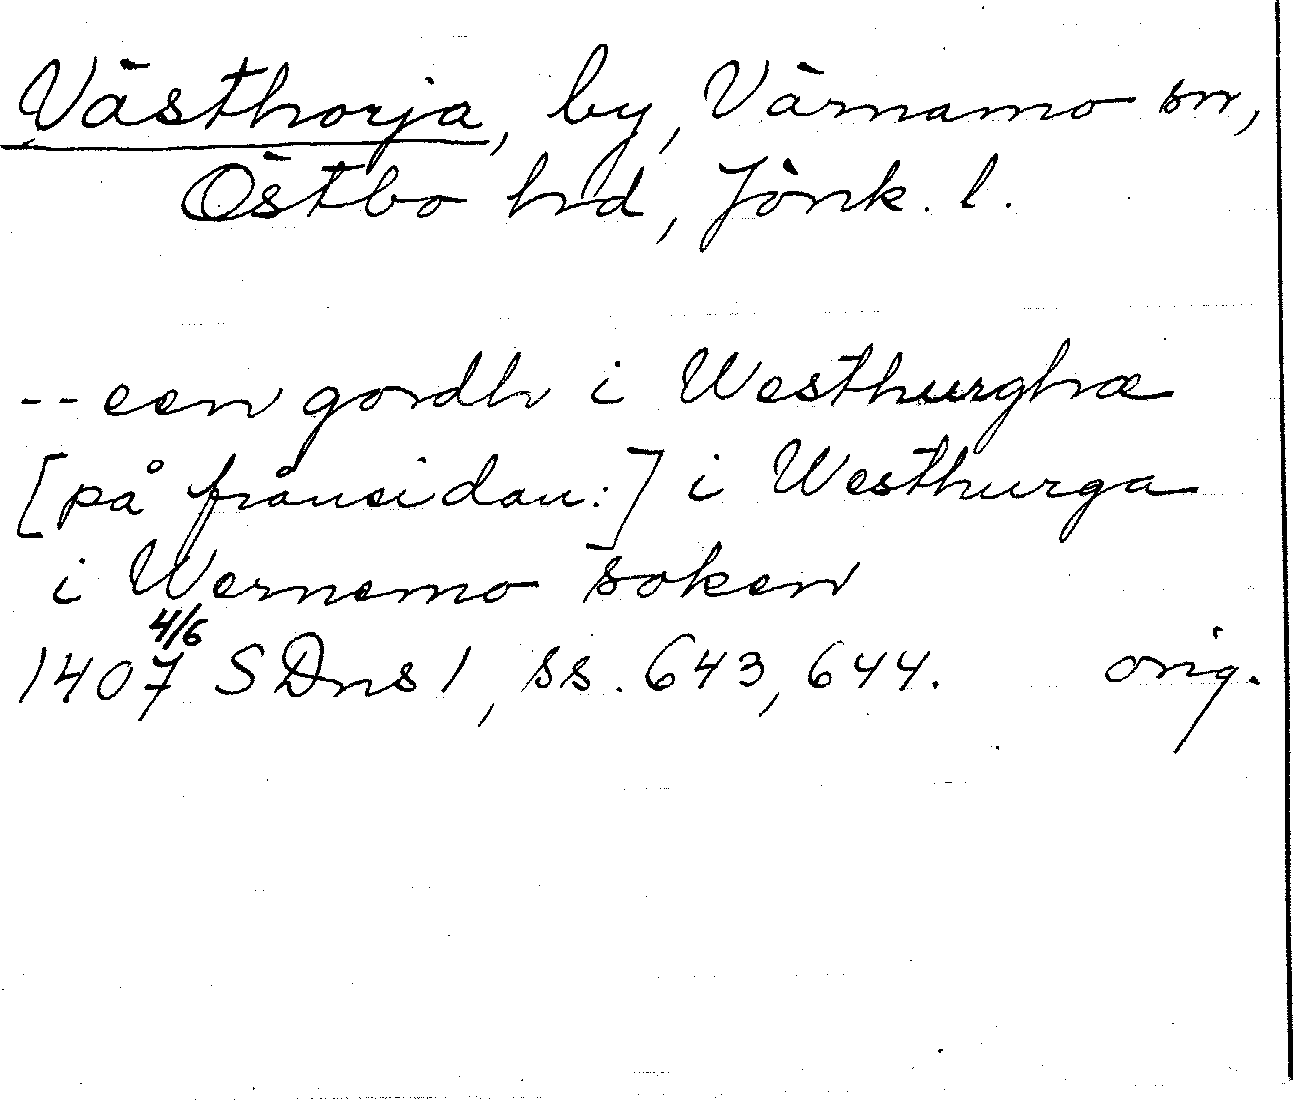 Västhorja, by, Värnamo sn,
Östbo hrd, Jönk. l.
-- een gordh i Westhurghæ
[på frånsidan:] i Westhurga
i Wernemo soken
4/6
1407 SDns 1, ss. 643, 644. orig.